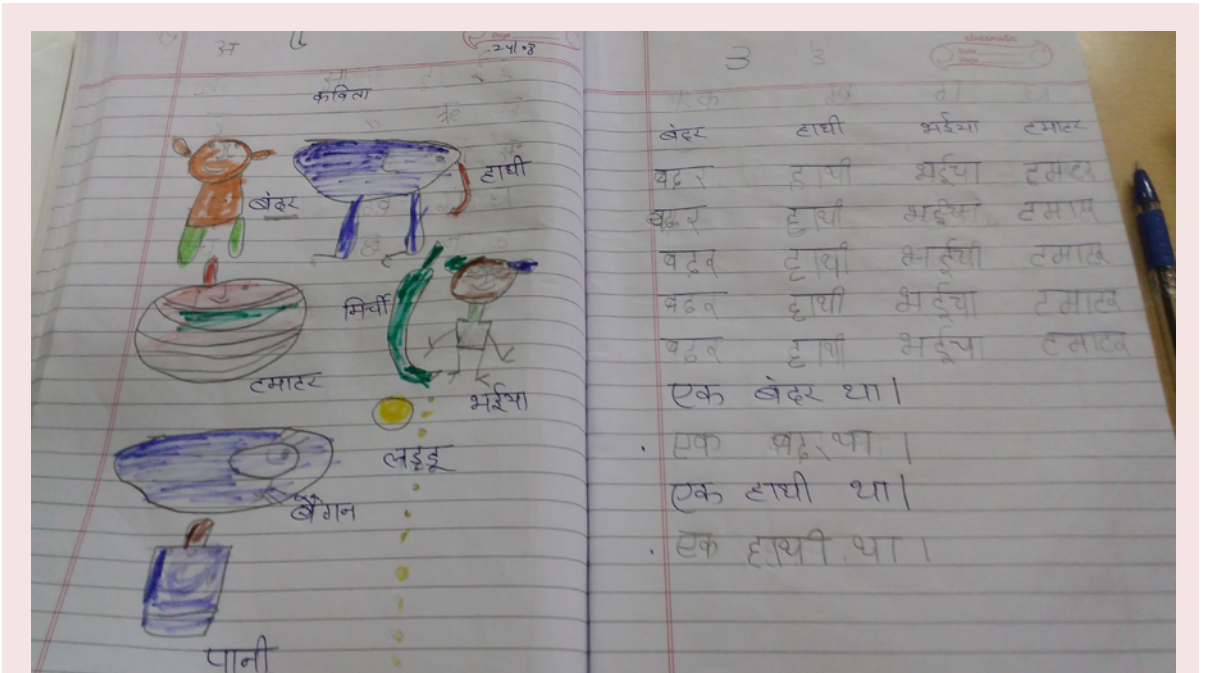 कविता
बंदर
हाथी
मिर्ची
टमाटर
भईया
लड्डू
बैंगन
पानी
बंदर हाथी भईया टमाटर
बदर हाथी भईया टमाटर
बदर हाथी भईया टमाटर
बदर हाथी भाईया टमाटर
बदर हाथी भईया टमाटर
बदर हाथी भईया टमाटर
एक बंदर था।
एक बदर था।
एक हाथी था।
एक हाथी था।